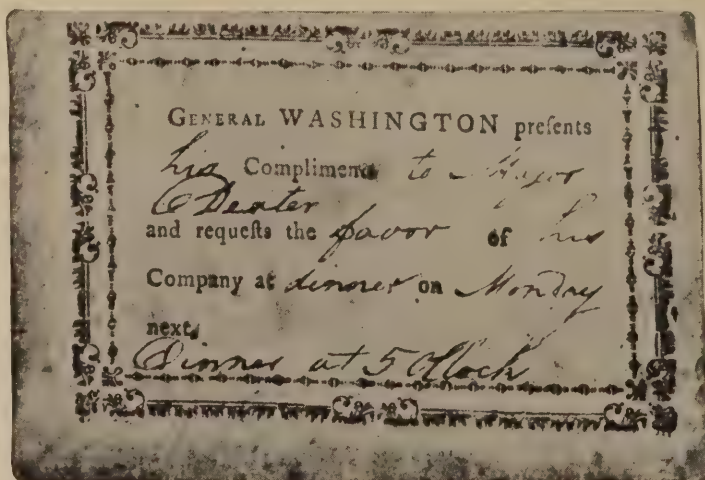 GENERAL WASHINGTON preſents
his Compliments to Major
Dexter
and requeſts the favor of his
Company at dinner on Monday
next,
Dinner at 5 OClock